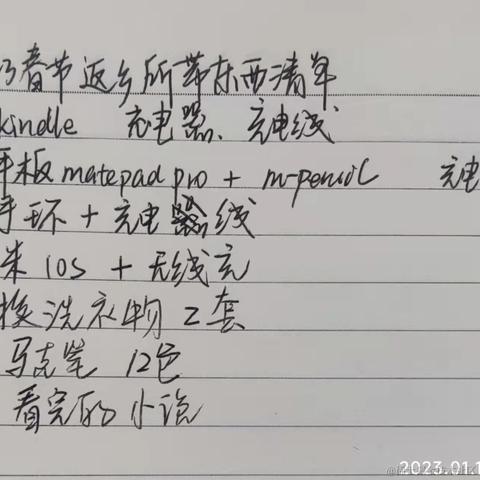 春节返乡所带东西清单
kindle 充电器、充电线
平板 matepad pro + m-pencil 充电
手环 + 充电线
米 10S + 无线充
换洗衣物 2套
马克笔 12色
看完的小说
2023.01.1